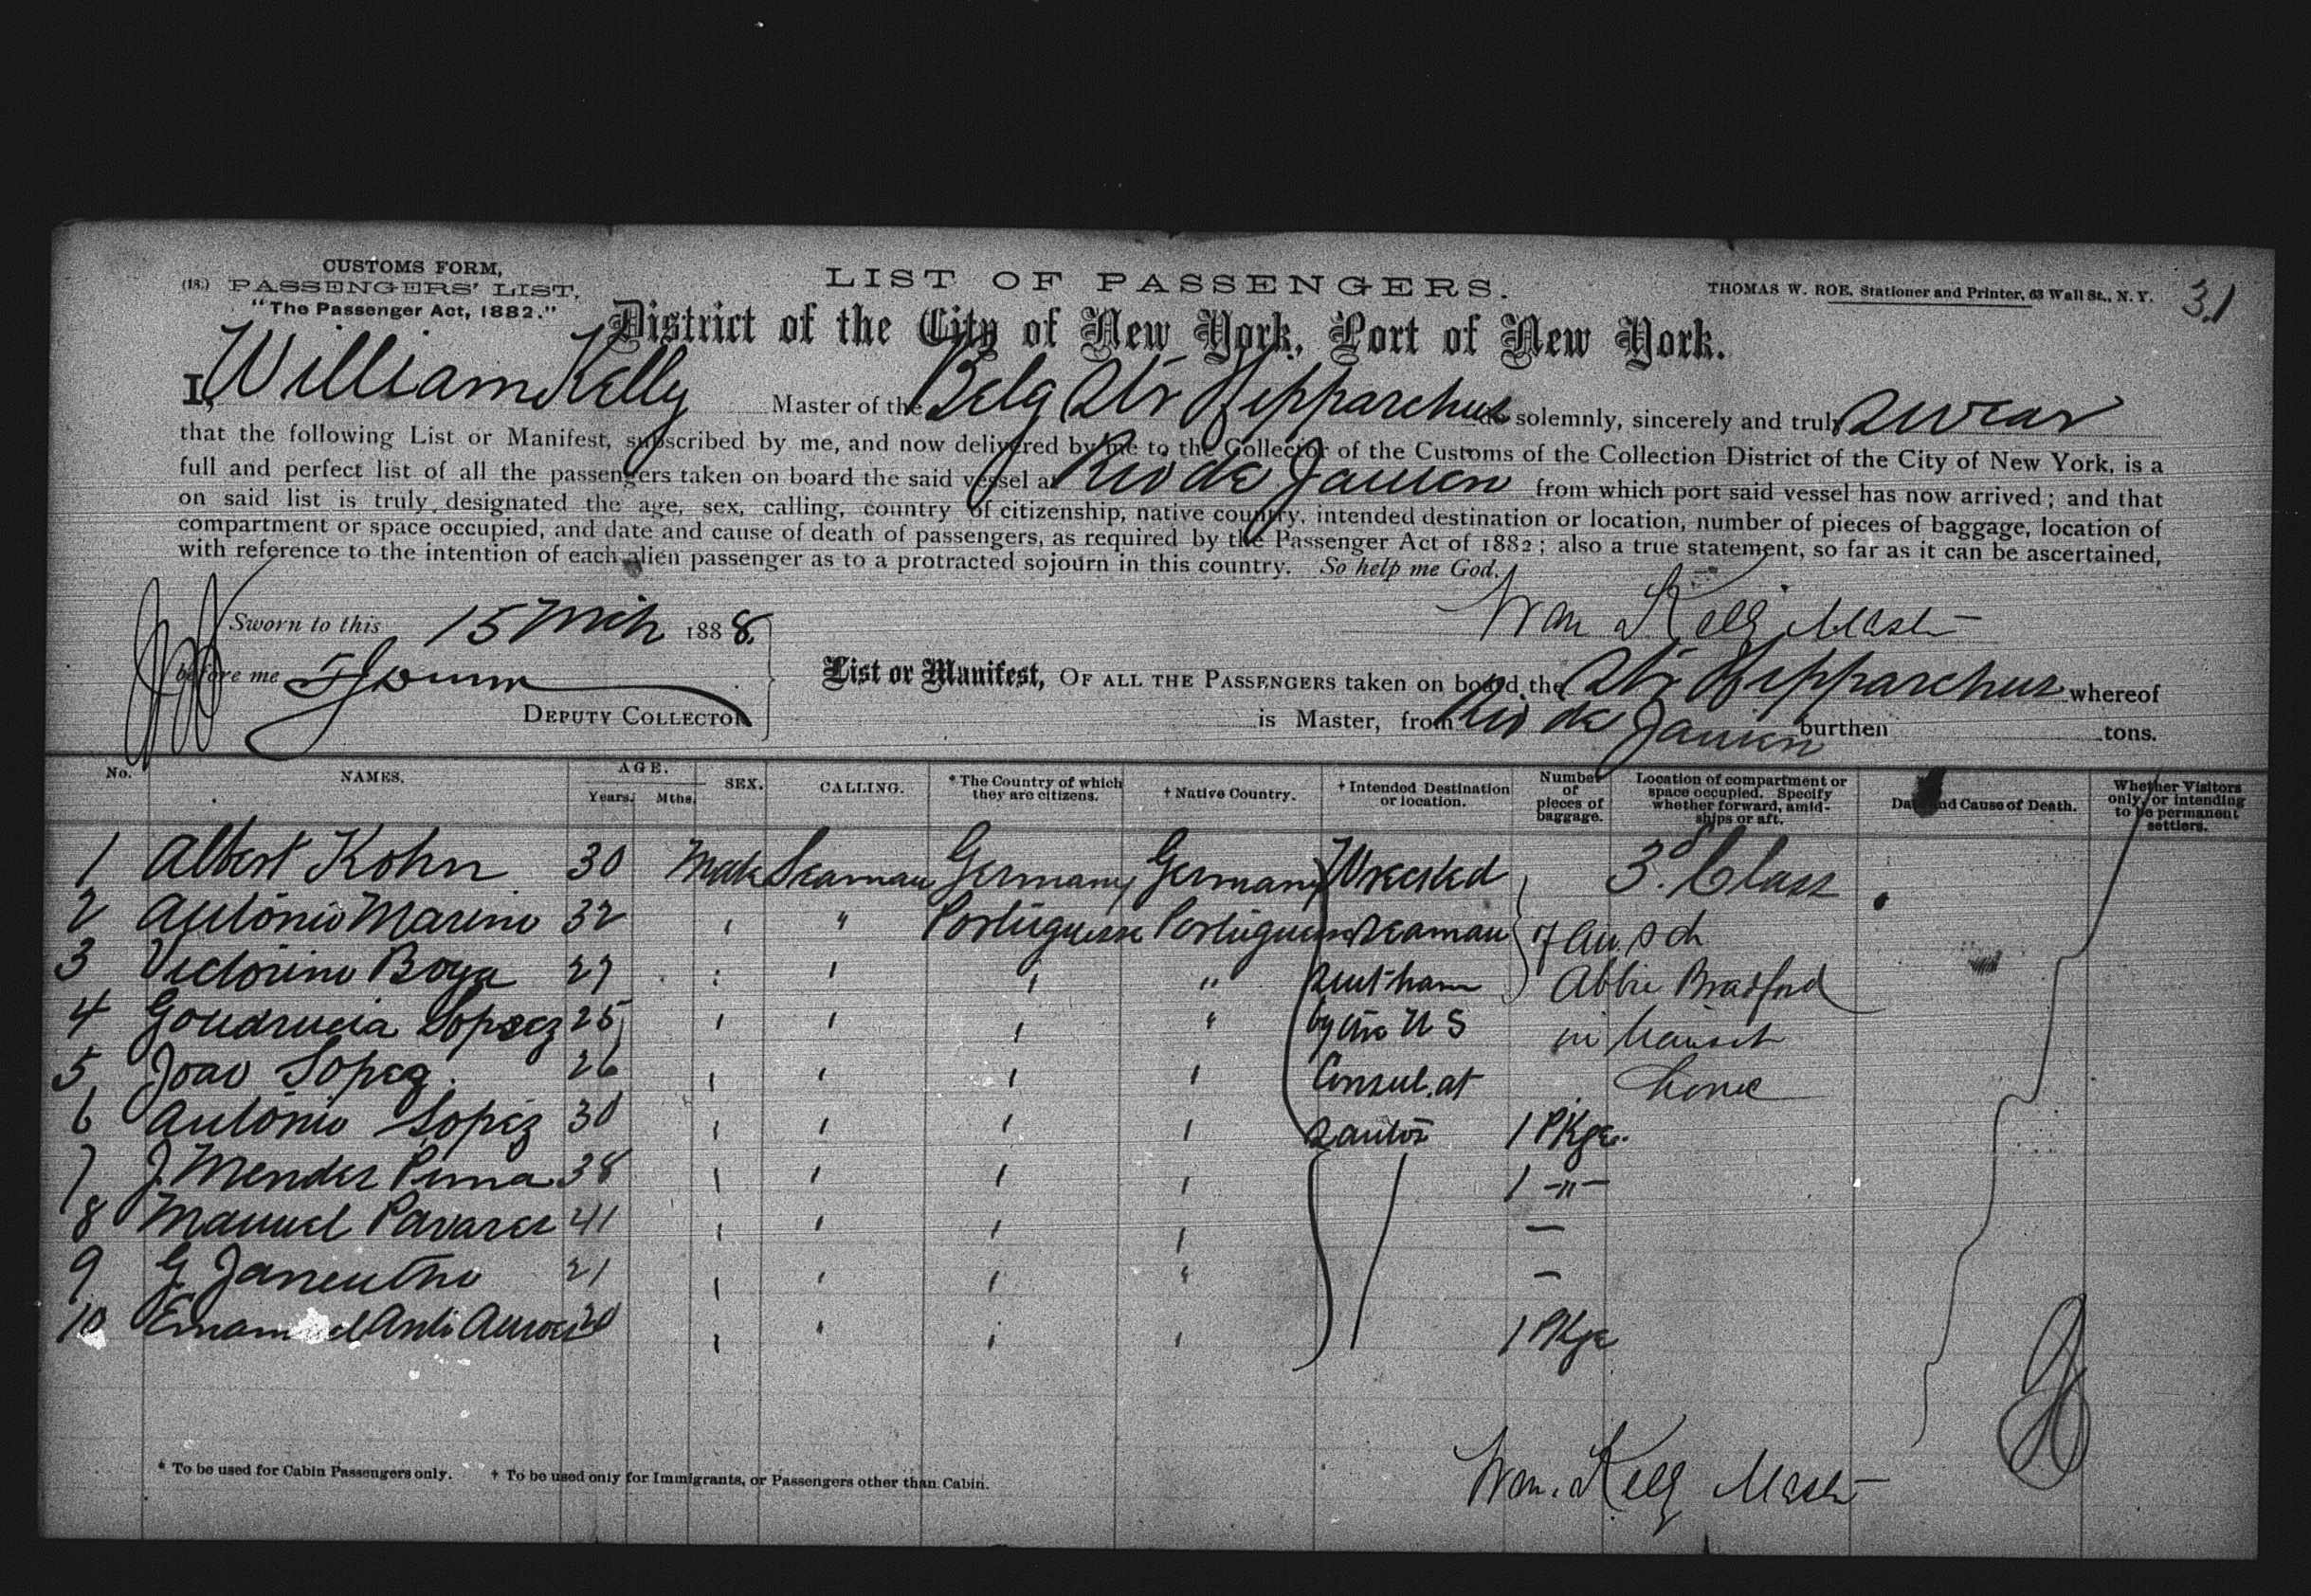 CUSTOMS FORM,
(18.) PASSENGERS' LIST,
"The Passenger Act, 1882."
LIST OF PASSENGERS.
THOMAS W. ROE, Stationer and Printer, 63 Wall St., N. Y.
31
District of the City of New York, Port of New York.
I, William Kelly Master of the Belg Str Hipparchus do solemnly, sincerely and truly swear
that the following List or Manifest, subscribed by me, and now delivered by me to the Collector of the Customs of the Collection District of the City of New York, is a
full and perfect list of all the passengers taken on board the said vessel at Rio de Janeiro from which port said vessel has now arrived; and that
on said list is truly designated the age, sex, calling, country of citizenship, native country, intended destination or location, number of pieces of baggage, location of
compartment or space occupied, and date and cause of death of passengers, as required by the Passenger Act of 1882; also a true statement, so far as it can be ascertained,
with reference to the intention of each alien passenger as to a protracted sojourn in this country. So help me God.
Wm Kelly Master
Sworn to this 15 Mch 1888.
before me
DEPUTY COLLECTOR
List or Manifest, OF ALL THE PASSENGERS taken on board the Str Hipparchus whereof
is Master, from Rio de Janeiro burthen tons.
No. NAMES. AGE. Years. Mths. SEX. CALLING. * The Country of which they are citizens. † Native Country. † Intended Destination or location. Number of pieces of baggage. Location of compartment or space occupied. Specify whether forward, amidships or aft. Date and Cause of Death. Whether Visitors only, or intending to be permanent settlers.
1 Albert Kohn 30 Male Seaman Germany Germany Wrecked 3d. Class
2 Antonio Marino 32 " " Portuguese Portuguese Seaman of Am. Sch
3 Victorino Boya 27 " " " " sent home Abbie Bradford
4 Lopez 25 " " " " by the U S in transit
5 Joao Lopez. 26 " " " " Consul. at home
6 Antonio Lopez 30 " " " " Santos 1 Pkge.
7 J. Mendes Pina 38 " " " " 1 -"-
8 Manuel Pavares 41 " " " " —
9 G 21 " " " " —
10 20 " " " " 1 Pkge
* To be used for Cabin Passengers only. † To be used only for Immigrants, or Passengers other than Cabin.
Wm. Kelly Master